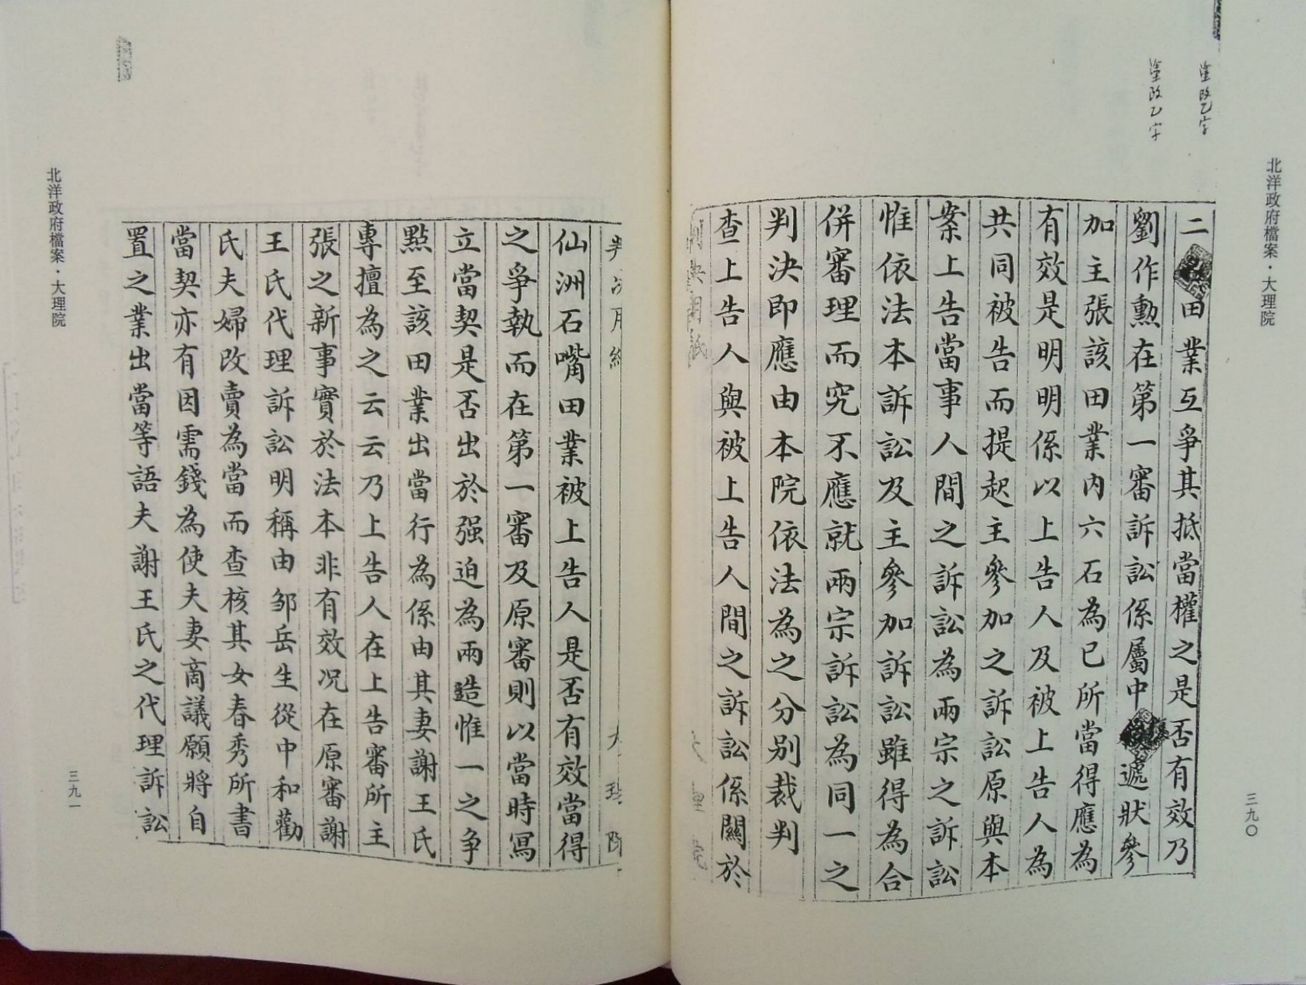 塗改乙字
塗改乙字
北洋政府檔案·大理院
三九〇
二田業互爭其抵當權之是否有效乃
劉作勳在第一審訴訟係屬中遞狀參
加主張該田業內六石為已所當得應為
有效是明明係以上告人及被上告人為
共同被告而提起主參加之訴訟原與本
案上告當事人間之訴訟為兩宗之訴訟
惟依法本訴訟及主參加訴訟雖得為合
併審理而究不應就兩宗訴訟為同一之
判決即應由本院依法為之分別裁判
查上告人與被上告人間之訴訟係關於
判決用紙
大理院
仙洲石嘴田業被上告人是否有效當得
之爭執而在第一審及原審則以當時寫
立當契是否出於强迫為兩造惟一之爭
點至該田業出當行為係由其妻謝王氏
專擅為之云云乃上告人在上告審所主
張之新事實於法本非有效况在原審謝
王氏代理訴訟明稱由邹岳生從中和勸
氏夫婦改賣為當而查核其女春秀所書
當契亦有因需錢為使夫妻商議願將自
置之業出當等語夫謝王氏之代理訴訟
北洋政府檔案·大理院
三九一